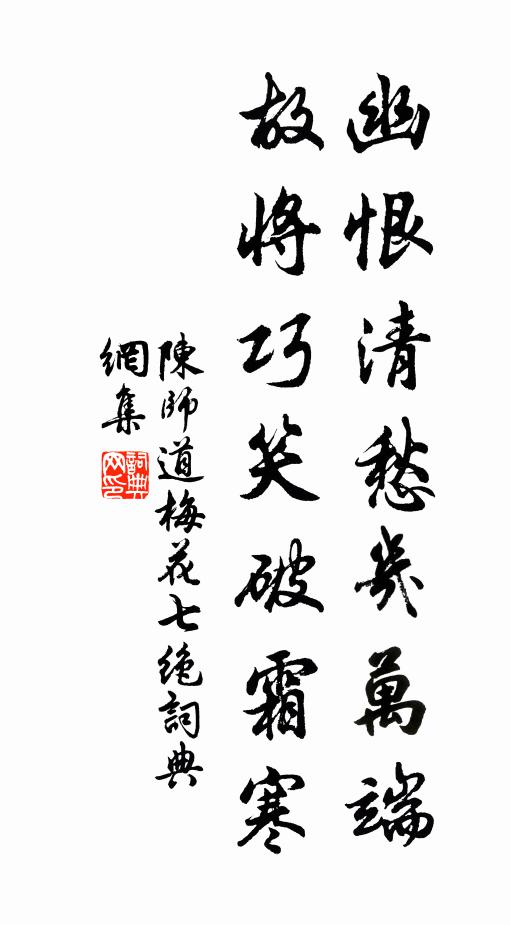 幽恨清愁幾萬端
故將巧笑破霜寒
陳師道梅花七絕詞典
網集
詞典
网印